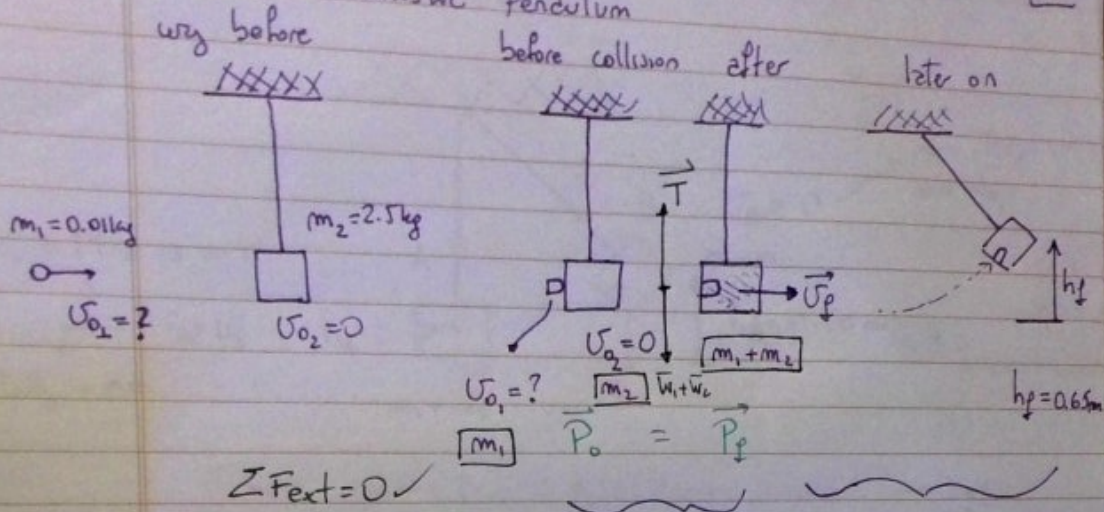 Pendulum
before
before collision after later on
T
m₁=0.01kg
m₂=2.5kg
υ₀₁=?
υ₀₂=0
υf
hf
υ₀₂=0
m₁+m₂
υ₀₁=?
m₂
W₁+W₂
hf=0.65m
m₁
P₀ = Pf
ΣFext=0✓